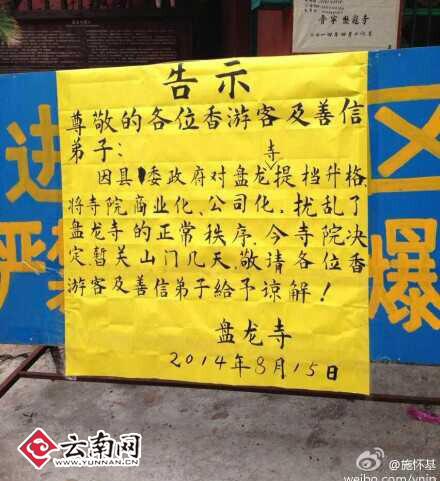 晋宁盘龙寺
告示
尊敬的各位香游客及善信
弟子：
寺
因县委政府对盘龙提档升格,
将寺院商业化、公司化,扰乱了
盘龙寺的正常秩序.今寺院决
定,暂关山门几天,敬请各位香
游客及善信弟子给予谅解！
盘龙寺
2014年8月15日
进
区
严禁
爆
云南网
WWW.YUNNAN.CN
@施怀基
weibo.com/ynjp